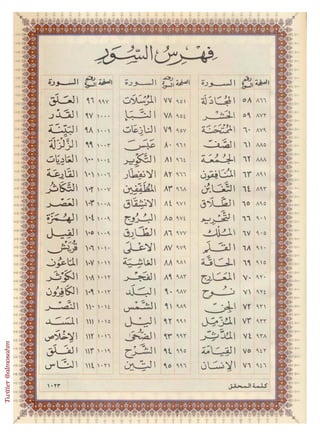 فهرس السور
الصفحة رقم السورة السورة الصفحة رقم السورة السورة الصفحة رقم السورة السورة
٨٦٦ ٥٨ المجادلة ٩٥١ ٧٧ المرسلات ٩٩٧ ٩٦ العلق
٨٧٢ ٥٩ الحشر ٩٥٤ ٧٨ النبإ ١٠٠٠ ٩٧ القدر
٨٧٩ ٦٠ الممتحنة ٩٥٧ ٧٩ النازعات ١٠٠١ ٩٨ البينة
٨٨٥ ٦١ الصف ٩٦٠ ٨٠ عبس ١٠٠٣ ٩٩ الزلزلة
٨٨٨ ٦٢ الجمعة ٩٦٤ ٨١ التكوير ١٠٠٤ ١٠٠ العاديات
٨٩١ ٦٣ المنافقون ٩٦٦ ٨٢ الانفطار ١٠٠٦ ١٠١ القارعة
٦٤ التغابن ٩٦٨ ٨٣ المطففين ١٠٠٧ ١٠٢ التكاثر
٦٥ الطلاق ٩٧١ ٨٤ الانشقاق ١٠٠٨ ١٠٣ العصر
٩٠١ ٦٦ التحريم ٩٧٤ ٨٥ البروج ١٠٤ الهمزة
٩٠٥ ٦٧ الملك ٩٧٧ ٨٦ الطارق ١٠٥ الفيل
٩١٠ ٦٨ القلم ٩٧٩ ٨٧ الأعلى ١٠١٠ ١٠٦ قريش
٩١٥ ٦٩ الحاقة ٩٨١ ٨٨ الغاشية ١٠١١ ١٠٧ الماعون
٩٢٠ ٧٠ المعارج ٩٨٣ ٨٩ الفجر ١٠١٢ ١٠٨ الكوثر
٩٢٤ ٧١ نوح ٩٨٧ ٩٠ البلد ١٠١٣ ١٠٩ الكافرون
٧٢ الجن ٩٨٩ ٩١ الشمس ١٠١٤ ١١٠ النصر
٩٣٢ ٧٣ المزمل ٩٩١ ٩٢ الليل ١٠١٥ ١١١ المسد
٩٣٨ ٧٤ المدثر ٩٩٣ ٩٣ الضحى ١١٢ الإخلاص
٩٤٢ ٧٥ القيامة ٩٩٥ ٩٤ الشرح ١٠١٩ ١١٣ الفلق
٩٤٦ ٧٦ الإنسان ٩٩٦ ٩٥ التين ١٠٢١ ١١٤ الناس
كلمة المحقق ١٠٢٣